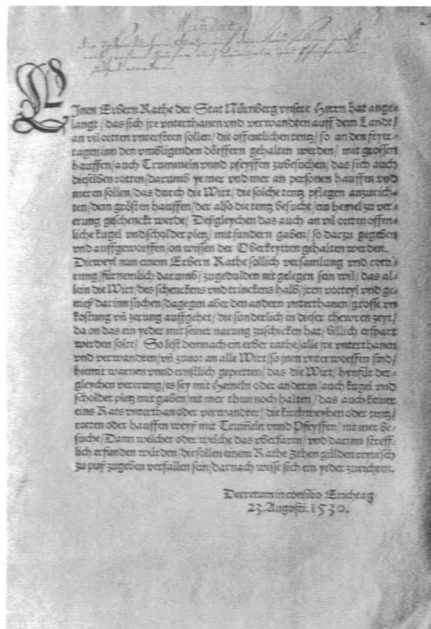 Mandat
EInen Erbern Rathe der Stat Nürnberg vnsere Herrn hat ange-
langt/ das sich jre vnterthanen vnd verwandten auff dem Lande/
an vil ortten vntersteen sollen/ die offentlichen tentz/ so an den feyer-
tagen vm den vmbligenden dörffern gehalten werden/ mit grossen
hauffen/ auch Trummeln vnnd pfeyffen zubesuchen/ das sich auch
dieselben rotten/ darumb ye mer vnd mer an personen hauffen vnd
meren sollen/ das durch die Wirt/ die solche tentz pflegen auszurich-
ten/ dem grösten hauffen/ der also die tentz besucht/ ein hemel zu ver-
erung geschenckt werde/ Deßgleychen das auch an vil ortten offen-
liche kugel vnd scholder pletz/ mit sundern gaben/ so darzu gegeben
vnd auffgeworffen/ on wissen der Oberkeytten gehalten werden.
Dieweyl nun einem Erbern Rathe sollich versamlung vnd rottu-
rung/ fürnemlich darumb/ zugedulden nit gelegen sein wil/ das al-
lein die Wirt/ des schenckens vnd trinckens halb/ jren vorteyl vnd ge-
nieß darinn suchen/ dagegen aber den andern vnterthanen/ grosse vn-
kostung vñ zerung auffgehet/ die sunderlich in dieser theuren zeyt/
da on das ein yeder mit seiner narung zuschicken hat/ billich erspart
werden solt/ So lest demnach ein erber rathe/ alle jre vnterthanen
vnd verwandten/ vñ zuuor an alle Wirt/ so jnen vnterworffen sind/
hiemit warnen vnd ernstlich gepietten/ das die Wirt/ hynfür der-
gleychen vererung/ es sey mit Hemeln oder anderm/ auch kugel vnd
scholder pletz mit gaben/ nit mer thun noch halten/ das auch keiner
eins Rats vnterthan oder verwandter/ die kirchweyhen oder tentz/
rotten oder hauffen weyß mit Trumeln vnnd Pfeyffen/ nit mer be-
suche/ Dann welcher oder welche das vberfaren/ vnd darinn streff-
lich erfunden würden/ die sollen einem Rathe Zehen gülden reynisch
zu puß zugeben verfallen sein/ darnach wisse sich ein yeder zurichten.
Decretum in consilio Erichtag
23. Augusti. 1530.